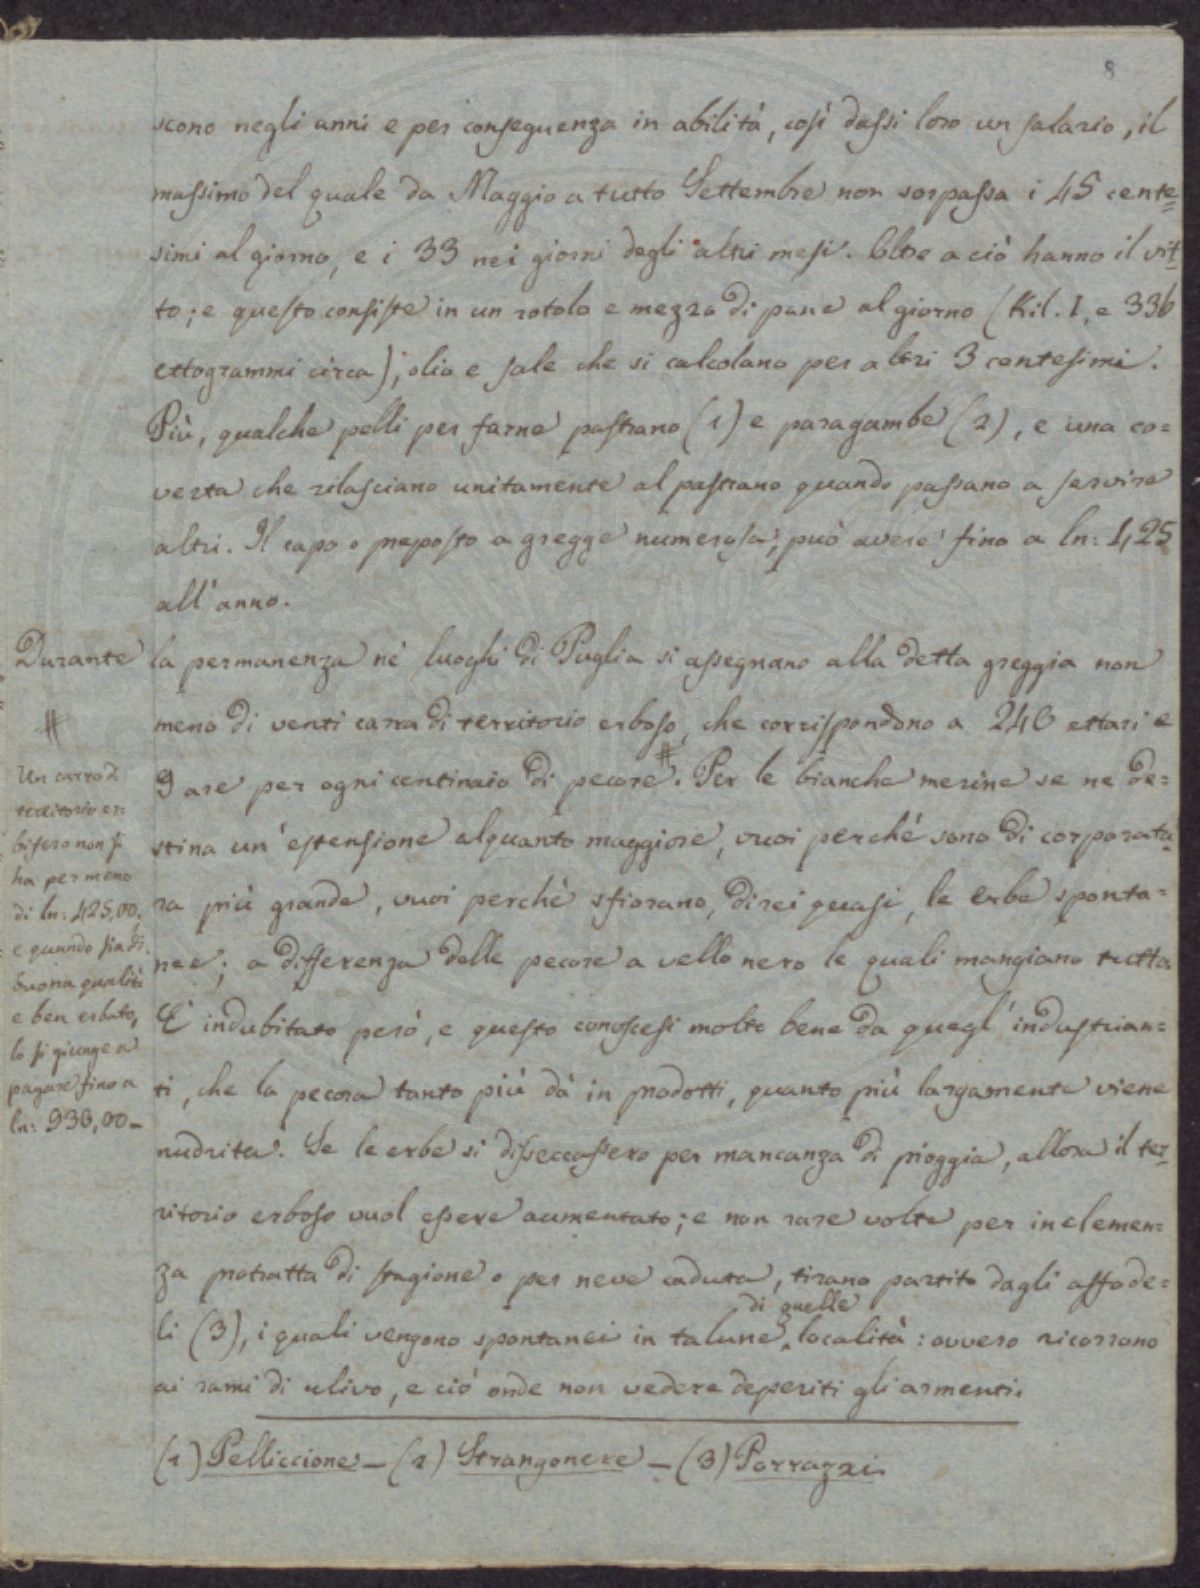 8
scono negli anni e per conseguenza in abilità, così dassi loro un salario, il
massimo del quale da Maggio a tutto Settembre non sorpassa i 45 cente=
simi al giorno, e i 33 nei giorni degli altri mesi. Oltre a ciò hanno il vit=
to; e questo consiste in un rotolo e mezzo di pane al giorno (Kil. 1, e 336
ettogrammi circa), olio e sale che si calcolano per altri 3 centesimi.
Più, qualche pelli per farne pastrano (1) e paragambe (2), e una co=
verta che rilasciano unitamente al pastrano quando passano a servire
altri. Il capo o preposto a gregge numerosa, può avere fino a ln: 1,25
all'anno.
Durante la permanenza ne' luoghi di Puglia si assegnano alla detta greggia non
meno di venti carra di territorio erboso, che corrispondono a 246 ettari e
9 are per ogni centinaio di pecore #. Per le bianche merine se ne de=
stina un'estensione alquanto maggiore, vuoi perché sono di corporatu=
ra più grande, vuoi perchè sfiorano, direi quasi, le erbe sponta=
nee; a differenza delle pecore a vello nero le quali mangiano tutto.
E' indubitato però, e questo conoscesi molto bene da quegl'industrian=
ti, che la pecora tanto più dà in prodotti, quanto più largamente viene
nudrita. Se le erbe si disseccassero per mancanza di pioggia, allora il ter=
ritorio erboso vuol essere aumentato; e non rare volte per inclemen=
za protratta di stagione o per neve caduta, tirano partito dagli affode=
li (3), i quali vengono spontanei in talune di quelle località: ovvero ricorrono
ai rami di ulivo, e ciò onde non vedere deperiti gli armenti.
(1) Pelliccione - (2) Strangonere - (3) Porrazzi.
#
Un carro di
territorio er=
bifero non si
ha per meno
di ln: 425,00.
e quando sia di
buona qualità
e ben erbato,
lo si giunge a
pagare fino a
ln: 936,00 -